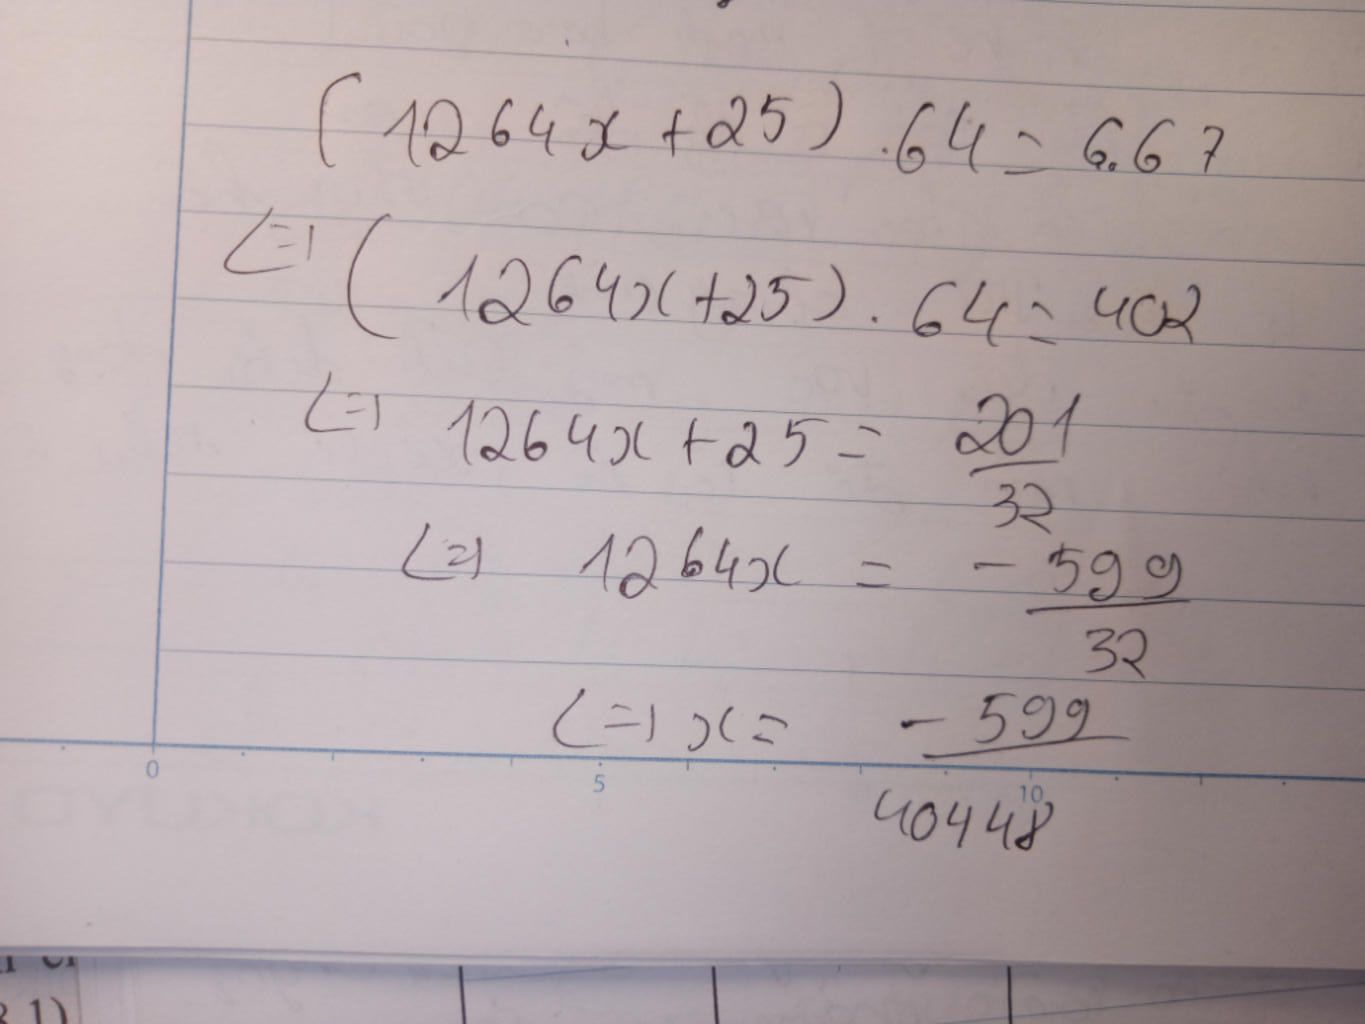 (1264x+25).64=6.67
<=> (1264x+25).64=402
<=> 1264x+25=201/32
<=> 1264x = -599/32
<=> x= -599/40448
0 5 10